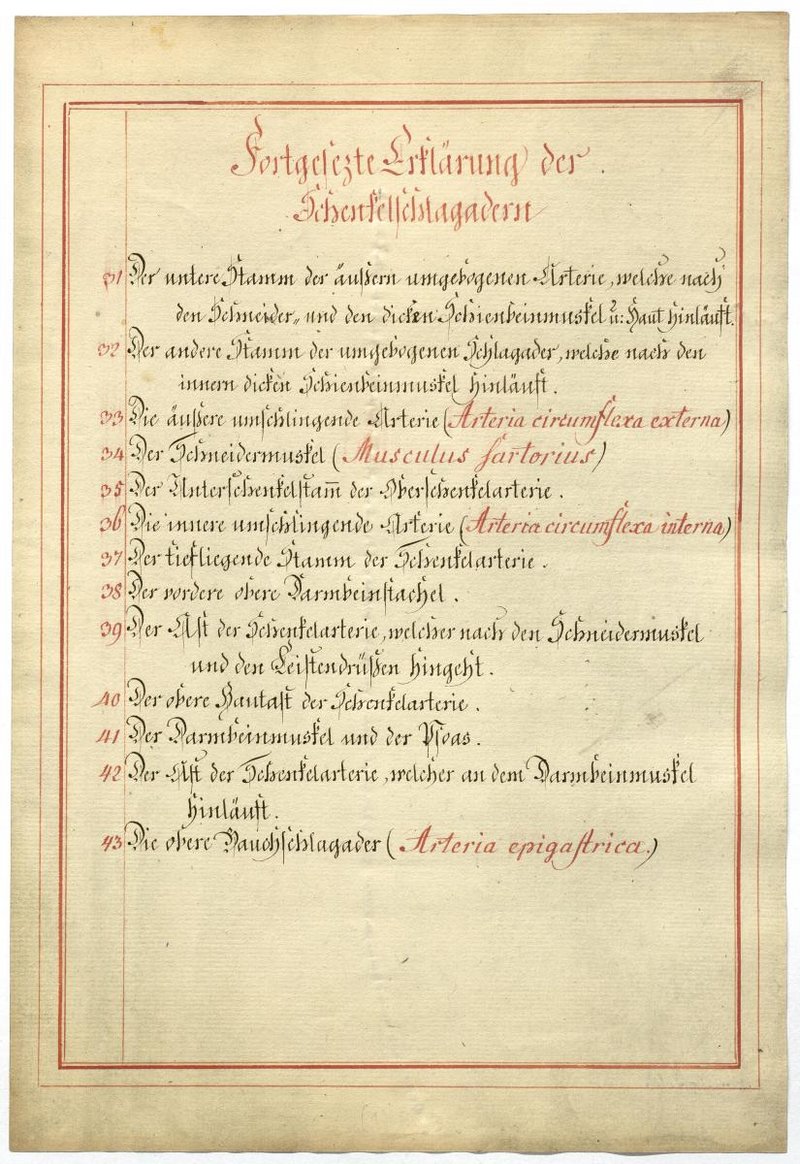 Fortgesezte Erklärung der
Schenkelschlagadern
31 Der untere Stamm der äußern umgebogenen Arterie, welche nach
den Schneider„ und den dicken Schienbeinmuskel u: Haut hinläuft.
32 Der andere Stamm der umgebogenen Schlagader, welche nach den
innern dicken Schienbeinmuskel hinläuft.
33 Die äußere umschlingende Arterie (Arteria circumflexa externa)
34 Der Schneidermuskel (Musculus sartorius)
35 Der Unterschenkelstam̅ der Oberschenkelarterie.
36 Die innere umschlingende Arterie (Arteria circumflexa interna)
37 Der tiefliegende Stamm der Schenkelarterie.
38 Der vordere obere Darmbeinstachel.
39 Der Ast der Schenkelarterie, welcher nach den Schneidermuskel
und den Leistendrüßen hingeht.
40 Der obere Hautast der Schenkelarterie.
41 Der Darmbeinmuskel und der Psoas.
42 Der Ast der Schenkelarterie, welcher an dem Darmbeinmuskel
hinläuft.
43 Die obere Bauchschlagader (Arteria epigastrica.)